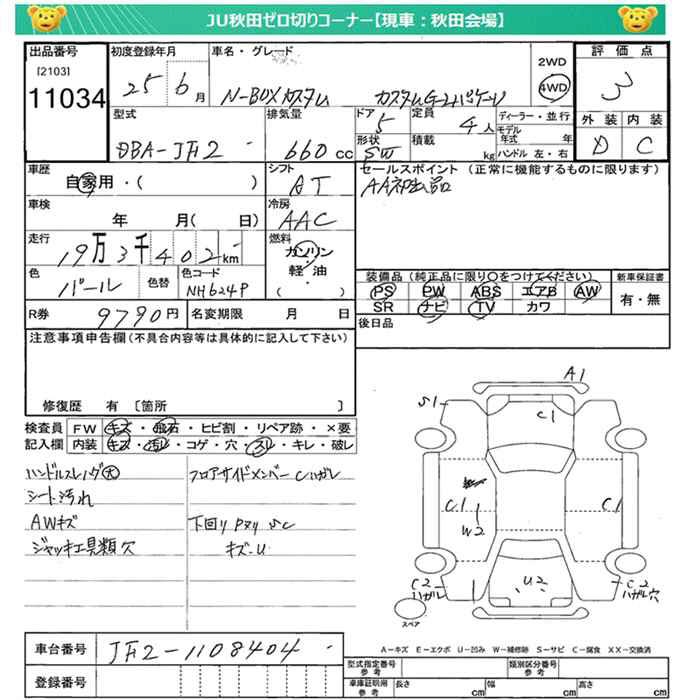 JU秋田ゼロ切りコーナー【現車：秋田会場】
出品番号 初度登録年月 車名・グレード 2WD 4WD 評価点
[2103]
11034 25 6月 N-BOXカスタム カスタムG-Lパッケージ 3
型式 排気量 ドア 5 定員 4人 ディーラー・並行 外装 内装
モデル年式 年
DBA-JF2 660cc 形状 SW 積載 kg ハンドル 左・右 D C
車歴 シフト セールスポイント (正常に機能するものに限ります)
自家用・( ) AT AA初出品
車検 冷房
年 月( 日) AAC
走行 燃料
19万3千402km ガソリン・
軽・油
色 色替 色コード
パール NH624P ( )
装備品(純正品に限り○をつけてください) 新車保証書
PS PW ABS エアB AW 有・無
SR ナビ TV カワ
R券 9790円 名変期限 月 日 後日品
注意事項申告欄(不具合内容等は具体的に記入して下さい)
修復歴 有 〔箇所 〕
検査員 FW キズ・飛石・ヒビ割・リペア跡・×要
記入欄 内装 キズ・汚レ・コゲ・穴・スレ・キレ・破レ
ハンドルスレ フロアサイドメンバーCハガレ
シート汚れ
AWキズ 下回りPヌリ SC
ジャッキ工具類欠 キズ-U
A1
S1
C1
C1
W2
C1
C2
ハガレ
U2
C2
ハガレ穴
スペア
A－キズ E－エクボ U－凹み W－補修跡 S－サビ C－腐食 XX－交換済
車台番号 JF2-1108404
登録番号
型式指定番号 参考 類別区分番号 参考
車庫証明用 参考 長さ cm 幅 cm 高さ cm